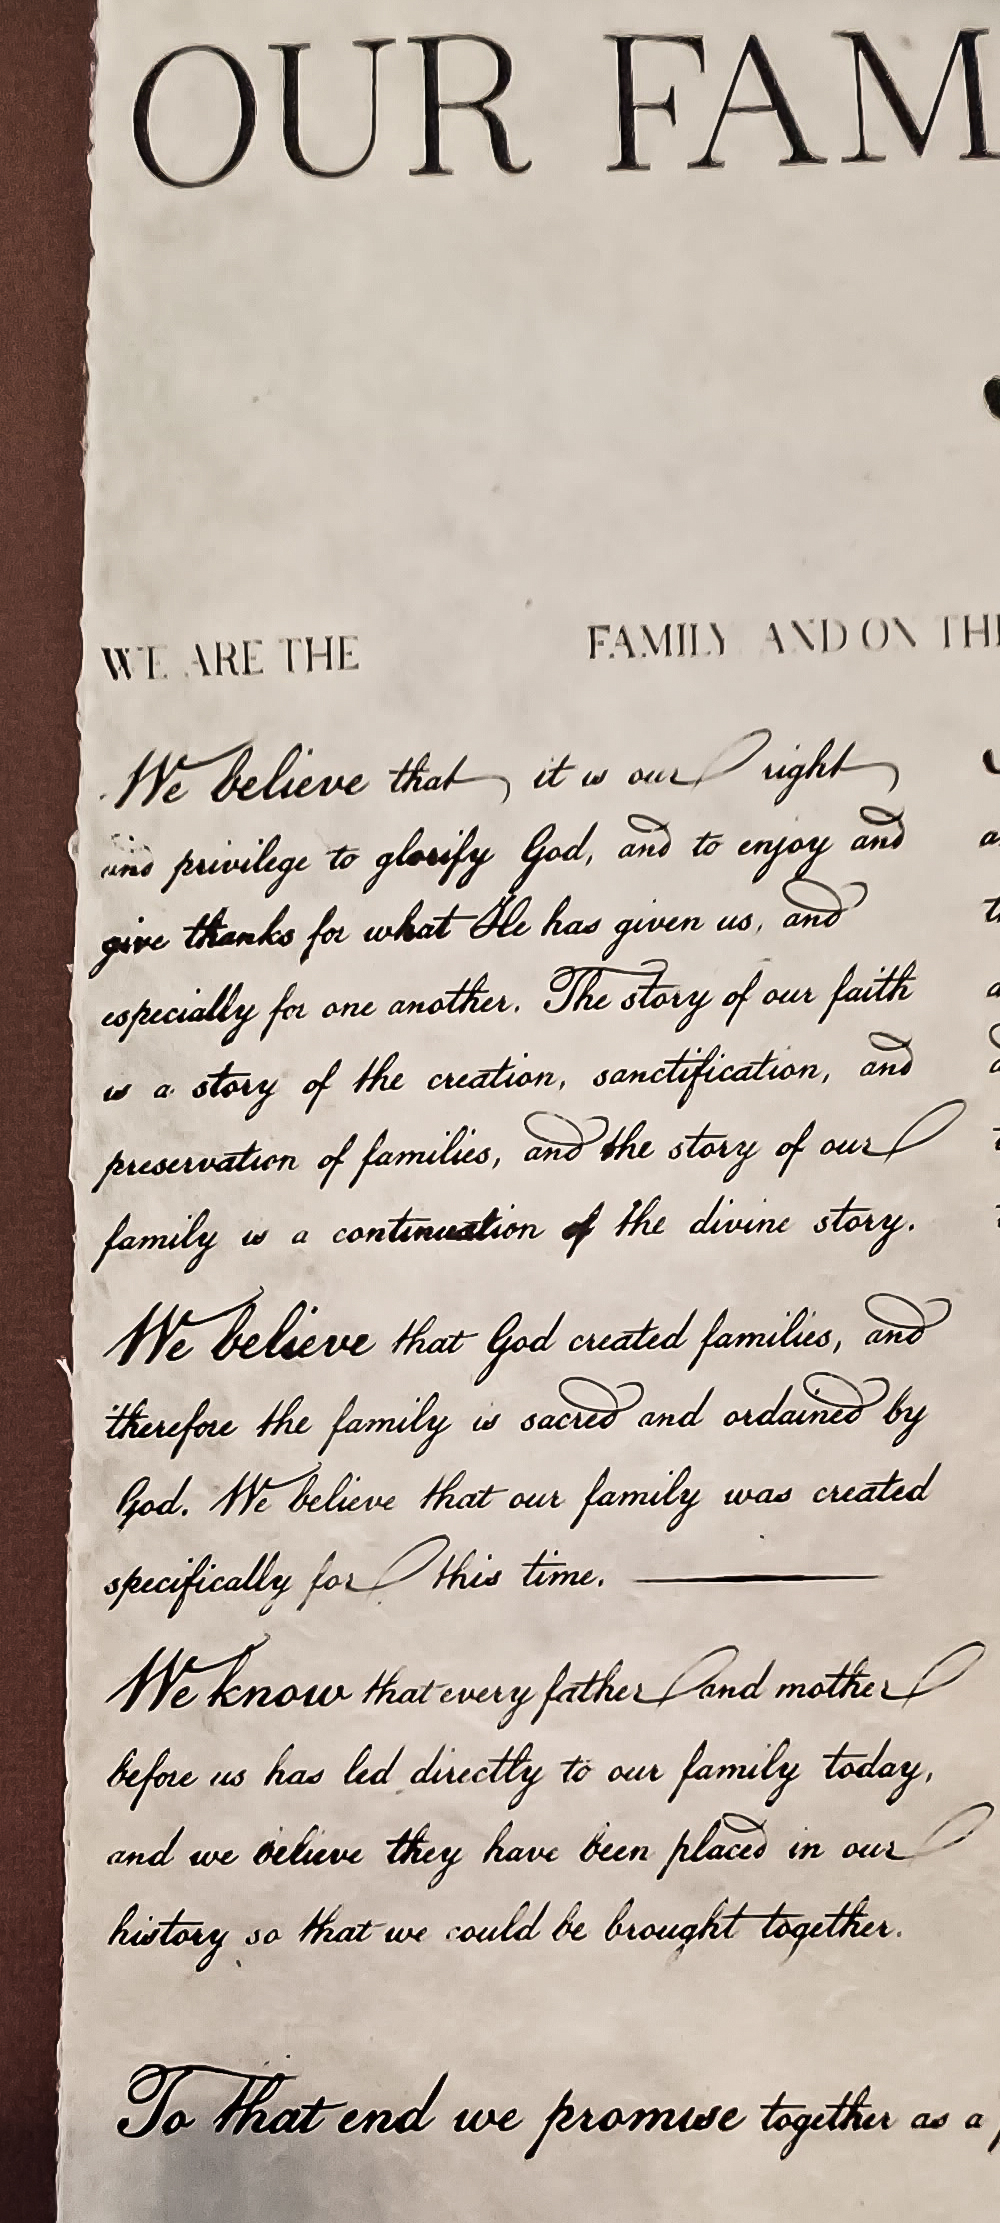 OUR FAM
WE ARE THE FAMILY AND ON THE
We believe that it is our right
and privilege to glorify God, and to enjoy and
give thanks for what He has given us, and
especially for one another. The story of our faith
is a story of the creation, sanctification, and
preservation of families, and the story of our
family is a continuation of the divine story.
We believe that God created families, and
therefore the family is sacred and ordained by
God. We believe that our family was created
specifically for this time.
We know that every father and mother
before us has led directly to our family today,
and we believe they have been placed in our
history so that we could be brought together.
To that end we promise together as a